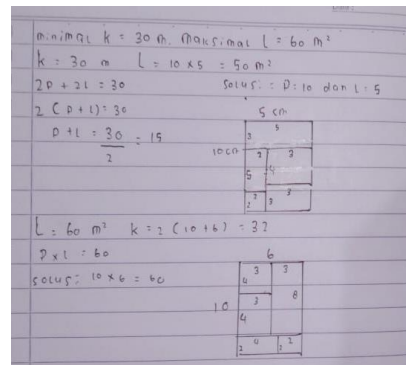 minimal k = 30 m. maksimal L = 60 m²
k = 30 m L = 10 x 5 = 50 m²
2p + 2L = 30 solusi = p = 10 dan L = 5
2 (p + L) = 30
p + L = 30/2 = 15
5 cm
5
3
10 cm
2 3
5 4
3
2 2 3
L = 60 m² k = 2 (10 + 6) = 32
p x L = 60
solusi = 10 x 6 = 60
6
3 3
4
10 3 8
4
2 4 2 2